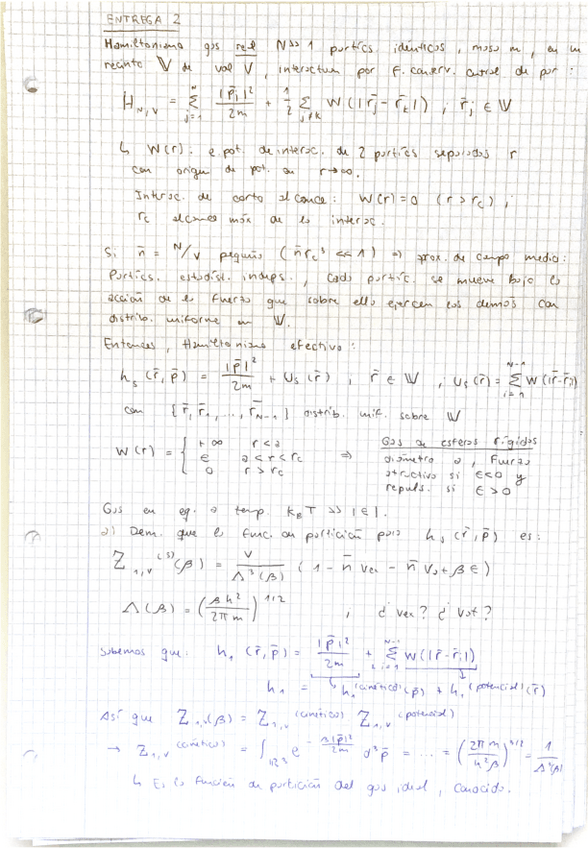 ENTREGA 2
Hamiltoniano gas real N>>1 partics. idénticas, masa m, en un
recinto 𝕍 de vol V, interactúan por f. conserv. central de por:
H_{N,V} = Σ_{j=1}^{N} |p̄_j|²/2m + 1/2 Σ_{j≠k} W(|r̄_j - r̄_k|) ; r̄_j ∈ 𝕍
↳ W(r) e pot. de interac. de 2 partics separadas r
con origen de pot. en r→∞.
Interac. de corto alcance: W(r)=0 (r>r_c);
r_c alcance máx de la interac.
Si n̄ = N/V pequeño (n̄r_c³ <<1) ⇒ aprox. de campo medio:
Partics. estadíst. indeps., cada partíc. se mueve bajo la
acción de la fuerza que sobre ella ejercen las demás con
distrib. uniforme en 𝕍.
Entonces, Hamiltoniano efectivo:
h_s(r̄, p̄) = |p̄|²/2m + U_s(r̄) ; r̄ ∈ 𝕍, U_s(r̄) = Σ_{i=1}^{N-1} W(|r̄-r̄_i|)
con {r̄, r̄_1, ..., r̄_{N-1}} distrib. unif. sobre 𝕍
W(r) = { +∞ r<a
ε a<r<r_c
0 r>r_c
⇒ Gas de esferas rígidas
diámetro a, fuerza
atractiva si ε<0 y
repuls. si ε>0
Gas en eq. a temp. k_B T >> |ε|.
a) Dem. que la func. de partición para h_s(r̄, p̄) es:
Z_{1,V}^{(s)}(β) = V/Λ³(β) (1 - n̄ V_ex - n̄ V_at β ε)
Λ(β) = (βh²/2πm)^{1/2} , ¿V_ex? ¿V_at?
Sabemos que: h_1(r̄, p̄) = |p̄|²/2m + Σ_{i=1}^{N-1} W(|r̄-r̄_i|)
h_1 = h_1^{(cinético)}(p̄) + h_1^{(potencial)}(r̄)
Así que Z_{1,V}(β) = Z_{1,V}^{(cinético)} Z_{1,V}^{(potencial)}
→ Z_{1,V}^{(cinético)} = ∫_{ℝ³} e^{-β|p̄|²/2m} d³p̄ = ... = (2πm/h²β)^{3/2} = 1/Λ³(β)
↳ Es la función de partición del gas ideal, conocido.